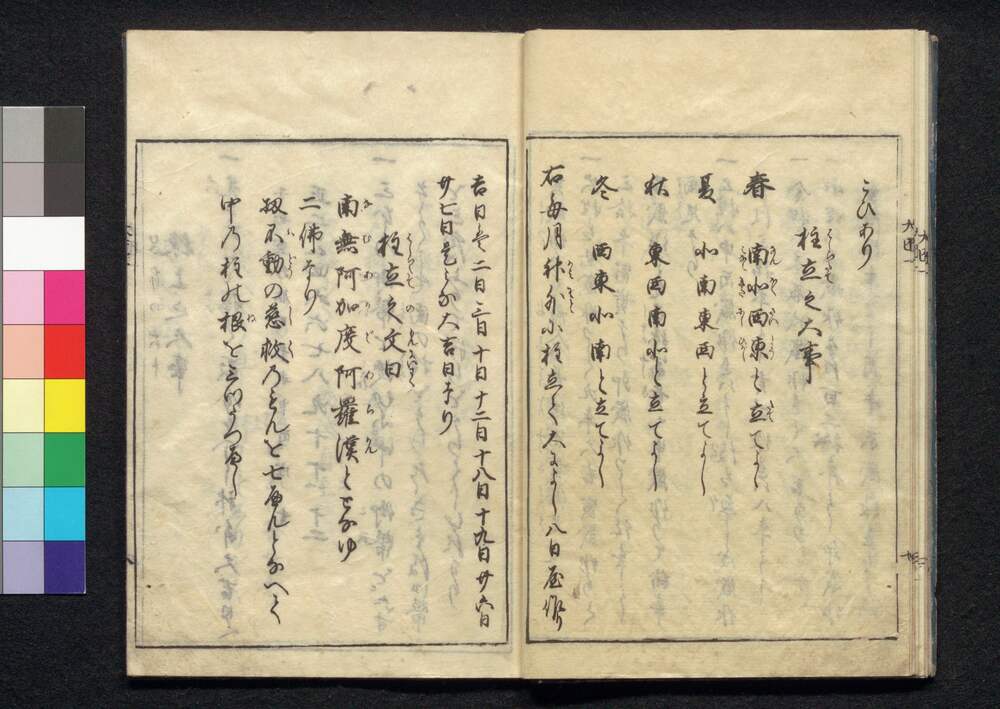 こひあり
柱立之大事
春 南北西東と立てよし
夏 北南東西と立てよし
秋 東西南北と立てよし
冬 西東北南と立てよし
右毎月 柱立て大によし八日屋
吉日は二日三日十日十二日十八日十九日廿六日
廿七日是よか大吉日なり
柱立之文曰
南無阿加度阿羅漢ととなゆ
二佛なり
不動の慈救乃もんを七へんとなへて
中乃柱の根を三つうつへし